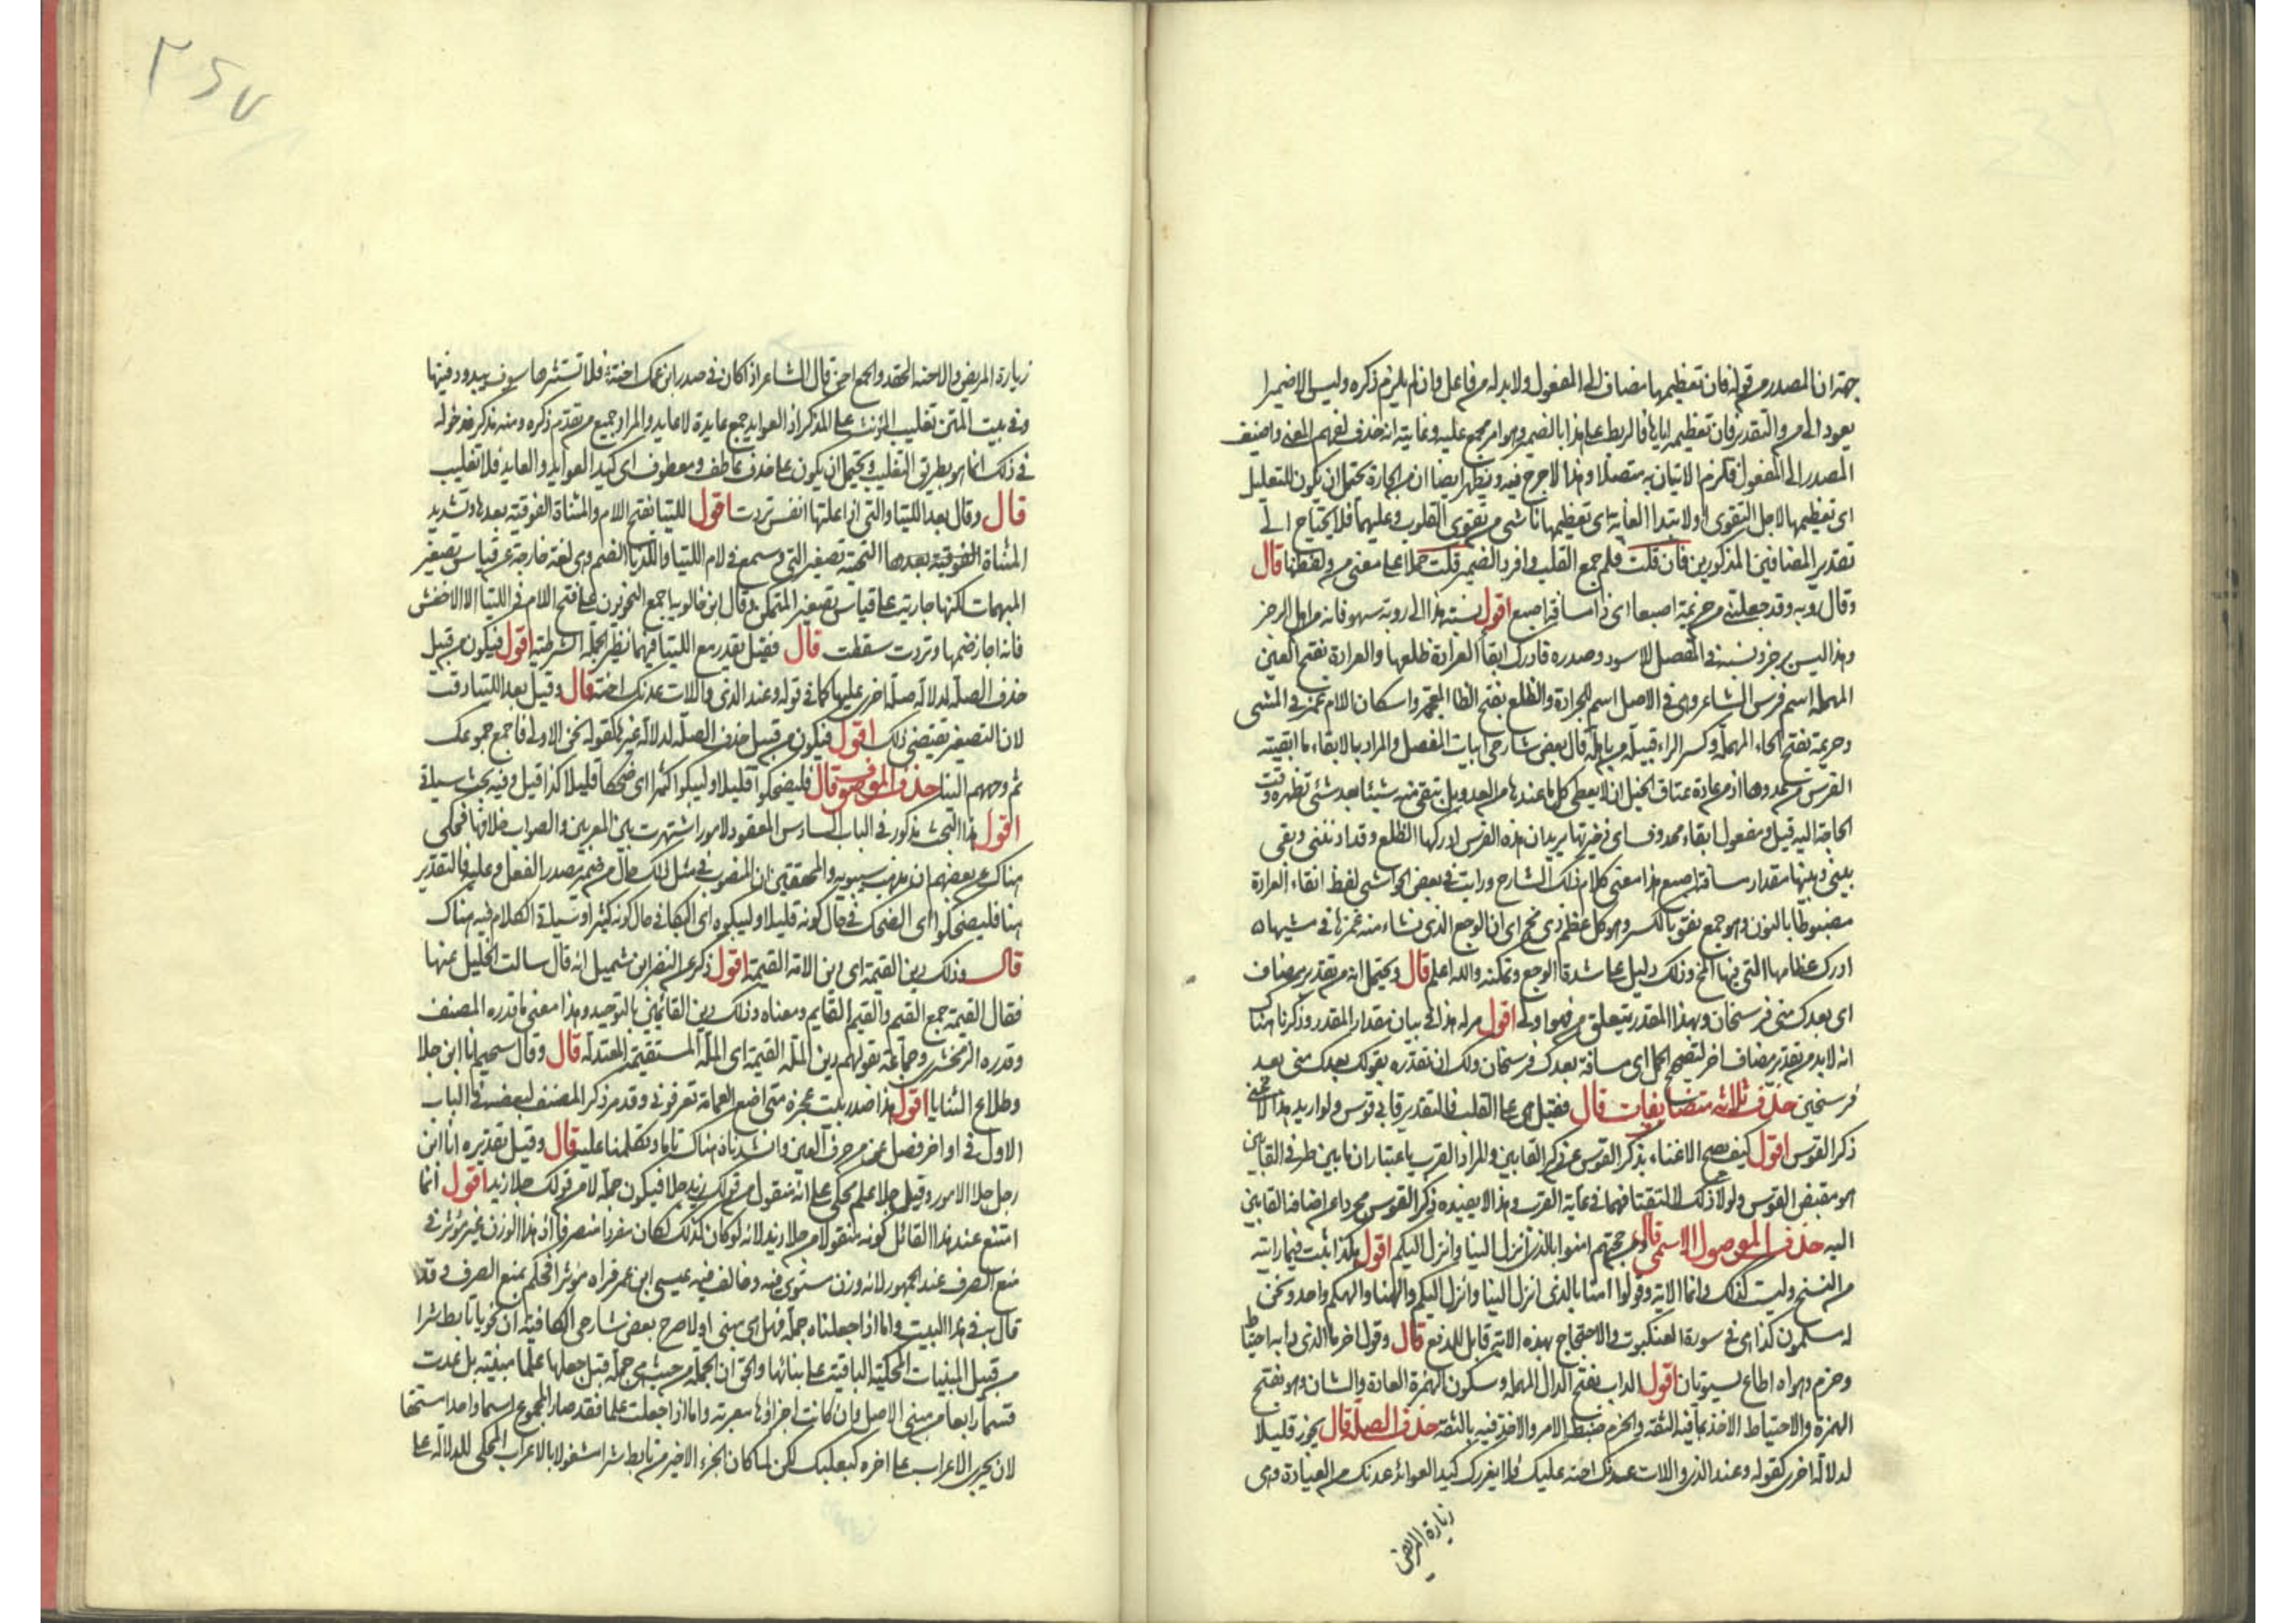 جهة ان المصدر من قوله فان تعظيمها مضاف الى المفعول ولا بد له من فاعل وان لم يلزم ذكره وليس الا ضميرا
يعود الى من والتقدير فان تعظيمه اياها فالربط على هذا بالضمير وهو امر مجمع عليه وغايته انه حذف لفهم المعنى واضيف
المصدر الى المفعول فلزم الاتيان به متصلا وهذا لا حرج فيه ويظهر ايضا ان من الجارة يحتمل ان يكون للتعليل
اى تعظيمها لاجل التقوى او لابتدا الغاية اى تعظيمها ناشى من تقوى القلوب وعليهما فلا يحتاج الى
تقدير المضافين المذكورين فان قلت فلم جمع القلب وافرد الضمير قلت حملا على معنى من ولفظها قال
وقال روبه وقد جعلتنى من حزيمة اصبعا اى ذا مسافة اصبع اقول نسبته هذا الى روبة سهو فانه من اهل الرجز
وهذا ليس برجز ونسبه فى المفصل للاسود وصدره فادرك ابقا العرادة ظلعها والعرادة بفتح العين
المهملة اسم فرس الشاعر وهى فى الاصل اسم للجرادة والظلع بفتح الظا المعجمة واسكان اللام غمز فى المشى
وحزيمة بفتح الحاء المهملة وكسر الزاء قبيلة من باهلة قال بعض شارحى ابيات المفصل والمراد بالابقاء ما ابقيته
الفرس من عدوها اذ من عادة عتاق الخيل ان لا يعطى كل ما عندها من العدو بل تبقى منه شيئا بعد شئى تظهره وقت
الحاجة اليه قيل ومفعول ابقاء محذوف اى ذخيرتها يريد ان هذه الفرس ادركها الظلع وقد ادنتنى وبقى
بينى وبينها مقدار مسافة اصبع هذا معنى كلام ذلك الشارح ورايت فى بعض الحواشى لفظ انقاء العرادة
مضبوطا بالنون وهو جمع نقو بالكسر وهو كل عظم ذى مخ اى ان الوجع الذى نشاء منه غمزها فى مشيها
ادرك عظامها التى فيها المخ وذلك دليل على شدة الوجع وتمكنه والله اعلم قال ويحتمل انه من تقدير مضاف
اى بعدك منى فرسخان وبهذا المقدر يتعلق من اقول مر له هذا فى بيان مقدار المقدر وذكرنا هناك
انه لابد من تقدير مضاف اخر لتصحيح الحمل اى مسافة بعدك فرسخان ولك ان تقدره بقولك بعدك منى بعد
فرسخين حذف ثلاثة متضايفات قال فقيل هى على القلب فالتقدير قابى قوس ولو اريد هذا لاغنى
ذكر القوس اقول كيف يصح الاغناء بذكر القوس عن ذكر القابين والمراد القرب باعتبار ان ما بين طرفى القابين
هو مقبض القوس ولولا ذلك لالتقتا فهما فى غاية القرب وهذا لا يفيده ذكر القوس مجردا عن اضافة القابين
اليه حذف الموصول الاسمى قال ومن حجتهم امنوا بالذى انزل الينا وانزل اليكم اقول هكذا يثبت فيما رايته
من النسخ وليست كذلك وانما الاية وقولوا امنا بالذى انزل الينا وانزل اليكم والهنا والهكم واحد ونحن
له مسلمون كذا هى فى سورة العنكبوت والاحتجاج بهذه الاية قابل للدفع قال وقول اخر ما الذى دابه احتياط
وحزم وهواه اطاع يستويان اقول الداب بفتح الدال المهملة وسكون الهمزة العادة والشان وهو بفتح
الهمزة والاحتياط الاخذ بما فيه الثقة والحزم ضبط الامر والاخذ فيه بالثقة حذف الصلة قال يجوز قليلا
لدلالة اخرى كقوله وعند الذى واللات عدنك احنة عليك فلا يغررك كيد العوائد عدنك من العيادة وهى
زيارة المريض
٢٤٧
زيارة المريض والاحنة الحقد والجمع احن قال الشاعر اذا كان فى صدر ابن عمك احنة فلا تستثرها سوف يبدو دفينها
وفى بيت المتن تغليب المؤنث على المذكر اذ العوايد جمع عايدة لا عايد والمراد جميع من تقدم ذكره ومنه مذكر فدخوله
فى ذلك انما هو بطريق التغليب ويحتمل ان يكون على حذف عاطف ومعطوف اى كيد العوايد والعايد فلا تغليب
قال وقال بعد اللتيا والتى اذا علتها انفس تردت اقول اللتيا بفتح اللام والمثناة الفوقية بعدها وتشديد
المثناة الفوقية بعدها التحتية تصغير التى وسمع فى لام اللتيا واللذيا الضم وهى لغة خارجة عن قياس تصغير
المبهمات لكنها جارية على قياس تصغير المتمكن قال ابن خالويه اجمع النحويون على فتح اللام فى اللتيا الا الاخفش
فانه اجاز ضمها وتردت سقطت قال فقيل يقدر مع اللتيا فيهما نظير الجملة الشرطية اقول فيكون من قبيل
حذف الصلة لدلالة صلة اخرى عليها كما فى قوله وعند الذى واللات عدنك احنة قال وقيل بعد اللتيا دقت
لان التصغير يقتضى ذلك اقول فيكون من قبيل حذف الصلة لدلالة غيرها كقوله نحن الاولى فاجمع جموعك
ثم وجههم الينا حذف الموصوف قال فليضحكوا قليلا وليبكوا كثيرا اى ضحكا قليلا كذا قيل وفيه بحث سياتى
اقول هذا البحث مذكور فى الباب السادس المعقود لامور اشتهرت بين المعربين والصواب خلافها فحكى
هناك عن بعضهم ان مذهب سيبويه والمحققين ان المنصوب فى مثل ذلك حال من ضمير مصدر الفعل وعليه فالتقدير
هنا فليضحكوا اى الضحك فى حال كونه قليلا وليبكوه اى البكا فى حال كونه كثيرا وسياتى الكلام فيه هناك
قال وذلك دين القيمة اى دين الامة القيمة اقول ذكر عن النضر ابن شميل انه قال سالت الخليل عنها
فقال القيمة جمع القيم والقيم القايم ومعناه وذلك دين القائمين بالتوحيد وهذا معنى ما قدره المصنف
وقدره الزمخشرى وجماعة بقولهم دين الملة القيمة اى الملة المستقيمة المعتدلة قال وقال سحيم انا ابن جلا
وطلاع الثنايا اقول هذا صدر بيت عجزه متى اضع العمامة تعرفونى وقد مر ذكر المصنف لبعضه فى الباب
الاول فى اواخر فصل عن من حرف العين وانشدناه هناك تاما وتكلمنا عليه قال وقيل تقديره انا ابن
رجل جلا الامور وقيل جلا علم محكى على انه منقول من قولك زيد جلا فيكون جملة لا من قولك جلا زيد اقول انما
امتنع عند هذا القائل كونه منقولا من جلا زيد لانه لو كان كذلك لكان مفردا منصرفا اذ هذا الوزن غير مؤثر فى
منع الصرف عند الجمهور لانه وزن مستوى فيه وخالف فيه عيسى ابن عمر فراه مؤثرا فحكم بمنع الصرف وقد
قال به فى هذا البيت واما اذا جعلناه جملة فهل هى مبنى او لا صرح بعض شارحى الكافية ان نحو يا تابط شرا
من قبيل المبنيات المحكية الباقية على بنائها والحق ان الجملة من حيث هى جملة قبل جعلها علما مبنية بل عدت
قسما رابعا من مبنى الاصل وان كانت اجزاؤها معربة واما اذا جعلت علما فقد صار المجموع اسما واحدا مستحقا
لان يجرى الاعراب على اخره كبعلبك لكن لما كان الجزء الاخير من تابط شرا مشغولا بالاعراب المحكى للدلالة على